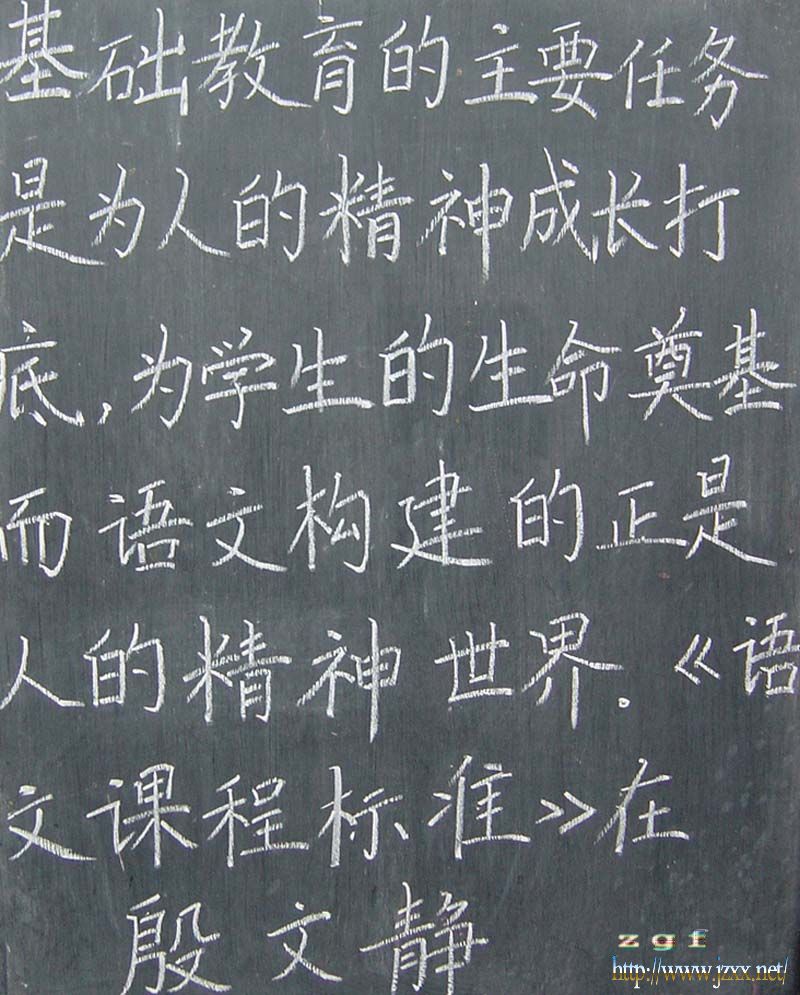 基础教育的主要任务
是为人的精神成长打
底,为学生的生命奠基
而语文构建的正是
人的精神世界。《语
文课程标准》在
殷文静
zgf
http://www.jzxx.net/